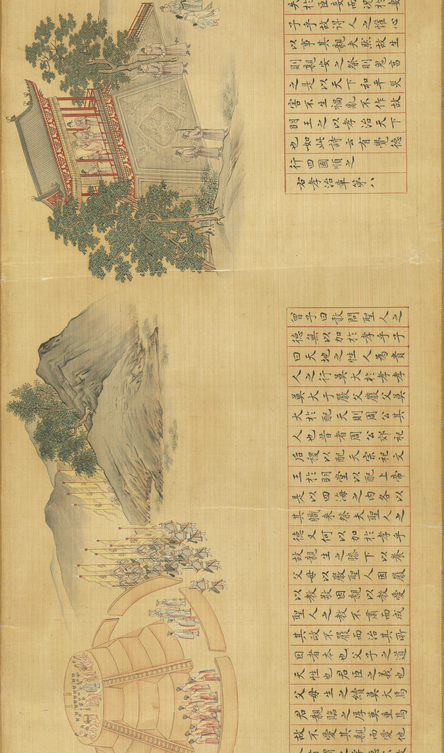 失於臣妾而況於妻
子乎故得人之懽心
以事其親夫然故生
則親安之祭則鬼享
之是以天下和平災
害不生禍亂不作故
明王之以孝治天下
也如此詩云有覺德
行四國順之
右孝治章第八
曾子曰敢問聖人之
德無以加於孝乎子
曰天地之性人為貴
人之行莫大於孝孝
莫大于嚴父嚴父莫
大於配天則周公其
人也昔者周公郊祀
后稷以配天宗祀文
王於明堂以配上帝
是以四海之内各以
其職來祭夫聖人之
德又何以加於孝乎
故親生之膝下以養
父母日嚴聖人因嚴
以教敬因親以教愛
聖人之教不肅而成
其政不嚴而治其所
因者本也父子之道
天性也君臣之義也
父母生之續莫大焉
君親臨之厚莫重焉
故不愛其親而愛他